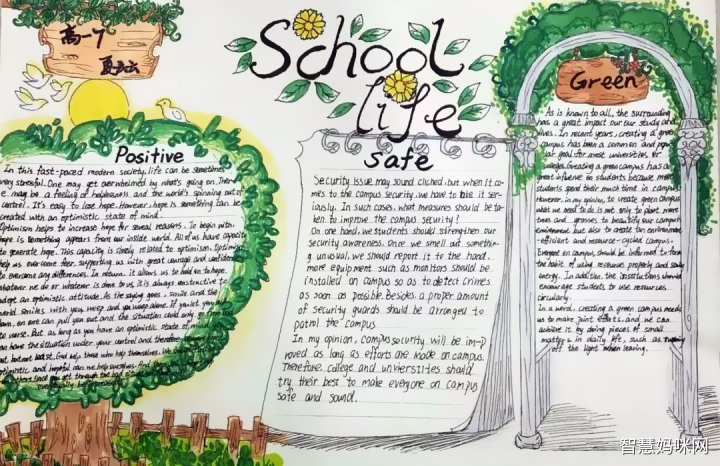 高一7
School
life
Positive
In this fast-paced modern society, life can be sometimes
very stressful. One may get overwhelmed by what's going on. There
may be a feeling of helplessness and the world's spinning out of
control. It's easy to lose hope. However, hope is something can be
created with an optimistic state of mind.
Optimism helps to increase hope for several reasons. To begin with,
hope is something appears from our inside world. All of us have capacity
to generate hope. This capacity is closely related to optimism. Optimism
help us overcome them, supporting us with great courage and confidence
to overcome any differences. In return, it allows us to hold on to hope.
Whatever we do or whatever is done to us, it is always constructive to
adopt an optimistic attitude. As the saying goes, smile and the
world smiles with you, weep and you weep alone. If you let
down, no one can pull you out and the situation could only go from
to worse. But as long as you have an optimistic state of
can have the situation under your control and therefore
out, but not least, God help those who help themselves.
optimistic, and hopful can we help ourselves.
safe
Security issue may sound cliched, but when it co-
mes to the campus security, we have to take it ser-
iously. In such cases, what measures should be ta-
ken to improve the campus security?
On one hand, we students should strengthen our
security awareness. Once we smell out somethin-
g unusual, we should report it to the hand,
more equipment such as monitors should be
installed on campus so as to detect crimes
as soon as possible. Besides, a proper amount
of security guards should be arranged to
patrol the campus.
In my opinion, campus security will be imp-
roved as long as efforts are made on campus.
Therefore, college and universtites should
try their best to make everyone on campus
safe and sound.
Green
As is known to all, the surrounding
has a great impact our our study and
lives. In recent years, creating a green
campus has been a common and popu-
lar goal for most universities or
colleges. Creating a green campus has a
great influence on students because most
students spend their much time in campus.
However, in my opinion, to create green campus
what we need to do is not only to plant more
trees and grasses to beautify our campus
environment but also to create an environment
-efficient and resource-cycled campus.
Everyone on campus should be informed to form
the habit of using resources properly and save
energy. In addition, the institutions should
encourage students to use resources
circularly.
In a word, creating a green campus needs
us to make joint efforts, and we can
achieve it by doing pieces of small
matters in daily life, such as turning
off the light when leaving.
智慧妈咪网